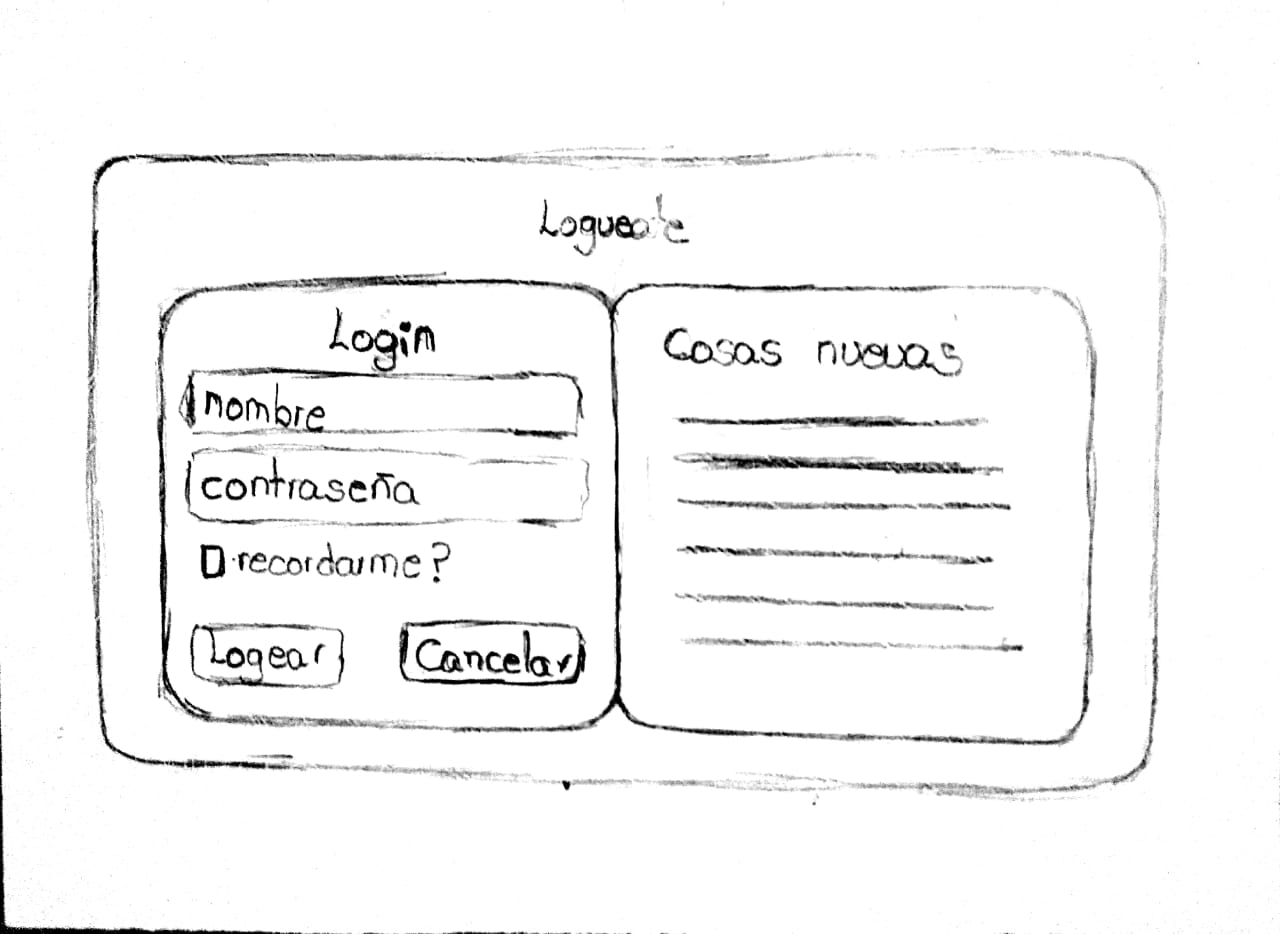 Logueate
Login
nombre
contraseña
recordarme?
Logear
Cancelar
Cosas nuevas